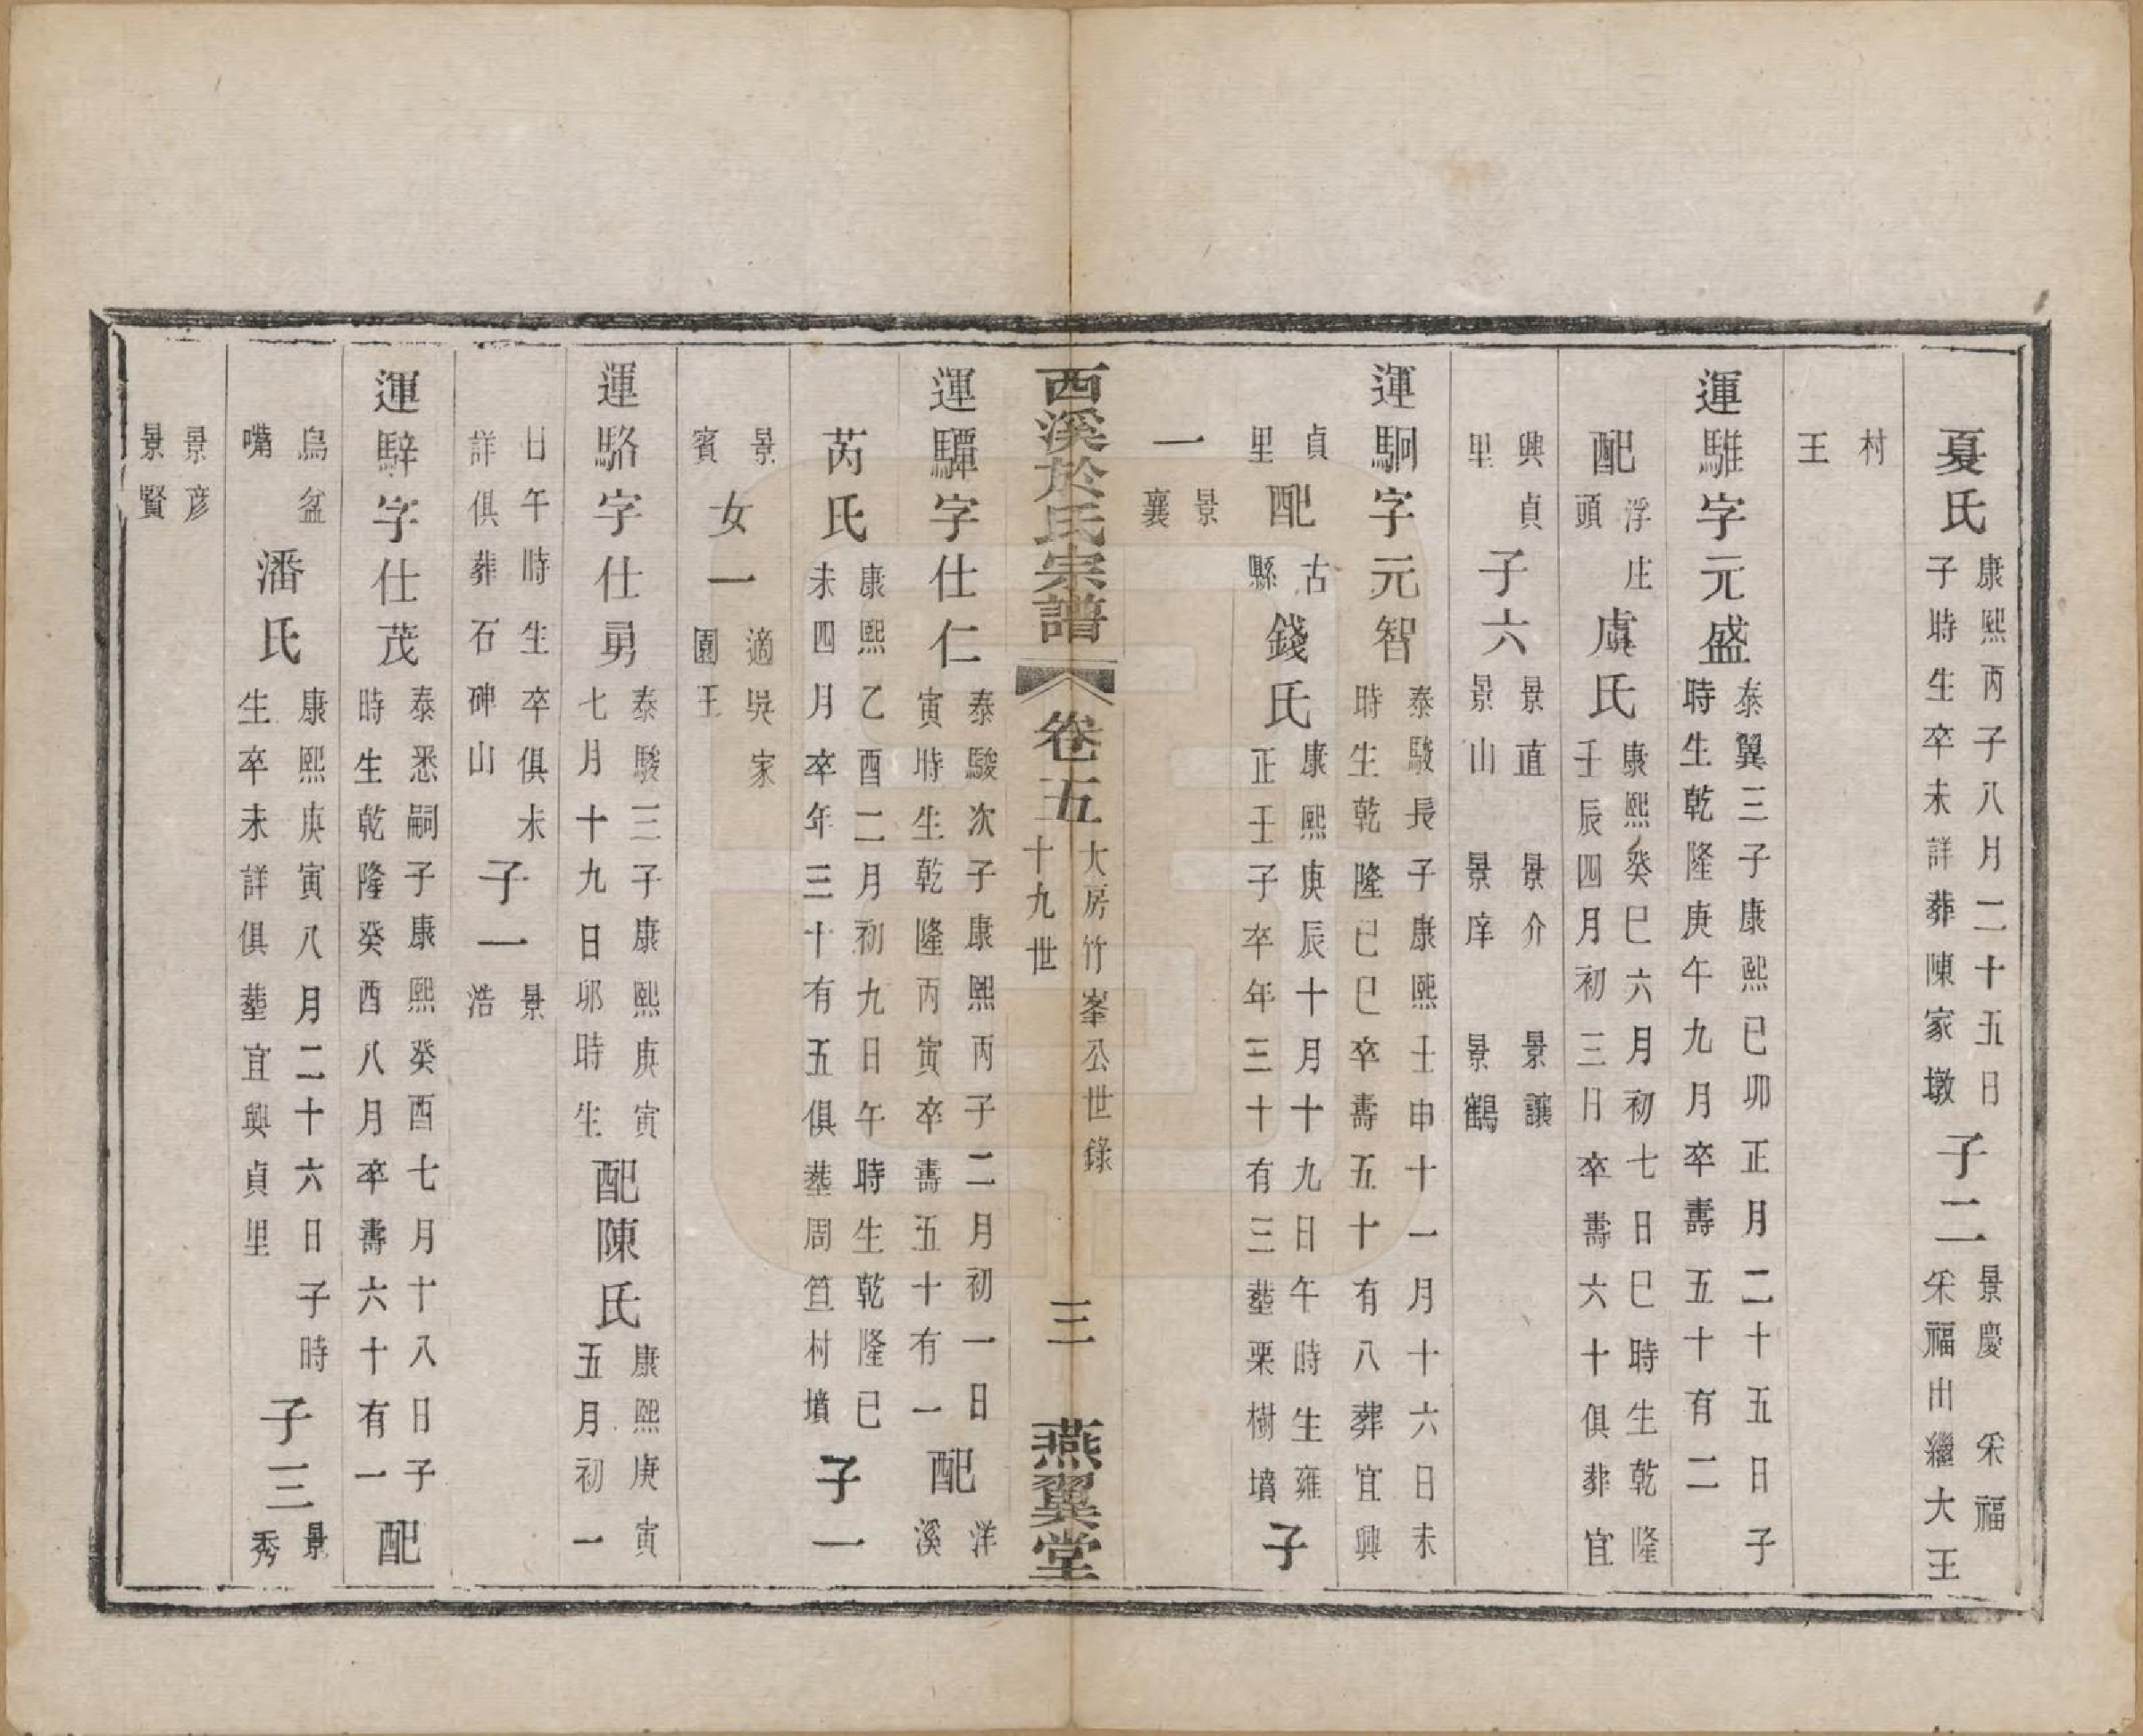 夏氏 康熙丙子八月二十五日 子時生卒未詳葬陳家墩 子二 景慶 釆福 釆福出繼大王
村 王
運騅字元盛 泰翼三子康熙己卯正月二十五日子 時生乾隆庚午九月卒壽五十有二
配 浮庄 頭 虞氏 康熙癸巳六月初七日巳時生乾隆 壬辰四月初三日卒壽六十俱葬宜
興貞 里 子六 景直 景介 景讓 景山 景庠 景鶴
運駉字元智 泰駿長子康熙壬申十一月十六日未 時生乾隆己巳卒壽五十有八葬宜興
貞 里 配 古 縣 錢氏 康熙庚辰十月十九日午時生雍 正壬子卒年三十有三塟栗樹墳 子
一 景 襄
西溪於氏宗譜 卷五 大房竹峯公世錄 十九世 三 燕翼堂
運驔字仕仁 泰駿次子康熙丙子二月初一日 寅時生乾隆丙寅卒壽五十有一 配 洋 溪
芮氏 康熙乙酉二月初九日午時生乾隆己 未四月卒年三十有五俱塟周笪村墳 子一
景 賓 女一 適吳家 圍王
運駱字仕勇 泰駿三子康熙庚寅 七月十九日卯時生 配陳氏 康熙庚寅 五月初一
日午時生卒俱未 詳俱葬石碑山 子一 景 浩
運騂字仕茂 泰悉嗣子康熙癸酉七月十八日子 時生乾隆癸酉八月卒壽六十有一 配
烏盆 嘴 潘氏 康熙庚寅八月二十六日子時 生卒未詳俱塟宜興貞里 子三 景 秀
景彦 景賢